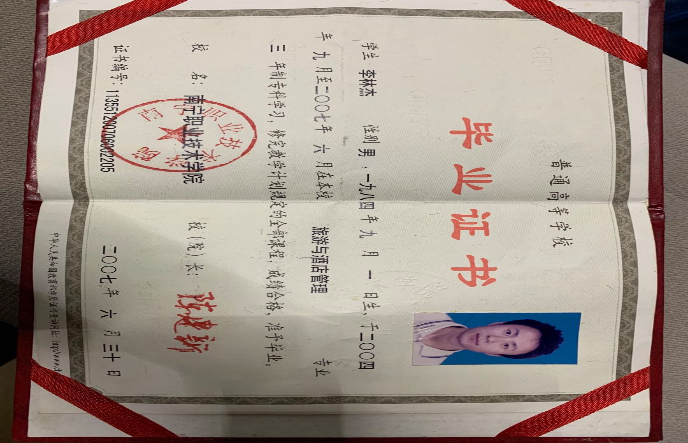 普通高等学校
毕业证书
学生 李林杰 性别 男,一九八四年 九 月 一 日生,于二〇〇四
年 九 月至二〇〇七年 六 月在本校 旅游与酒店管理 专业
三 年制专科学习,修完教学计划规定的全部课程,成绩合格,准予毕业。
校 名:南宁职业技术学院 校(院)长:
证书编号:113551200706002205 二〇〇七年 六 月 三十 日